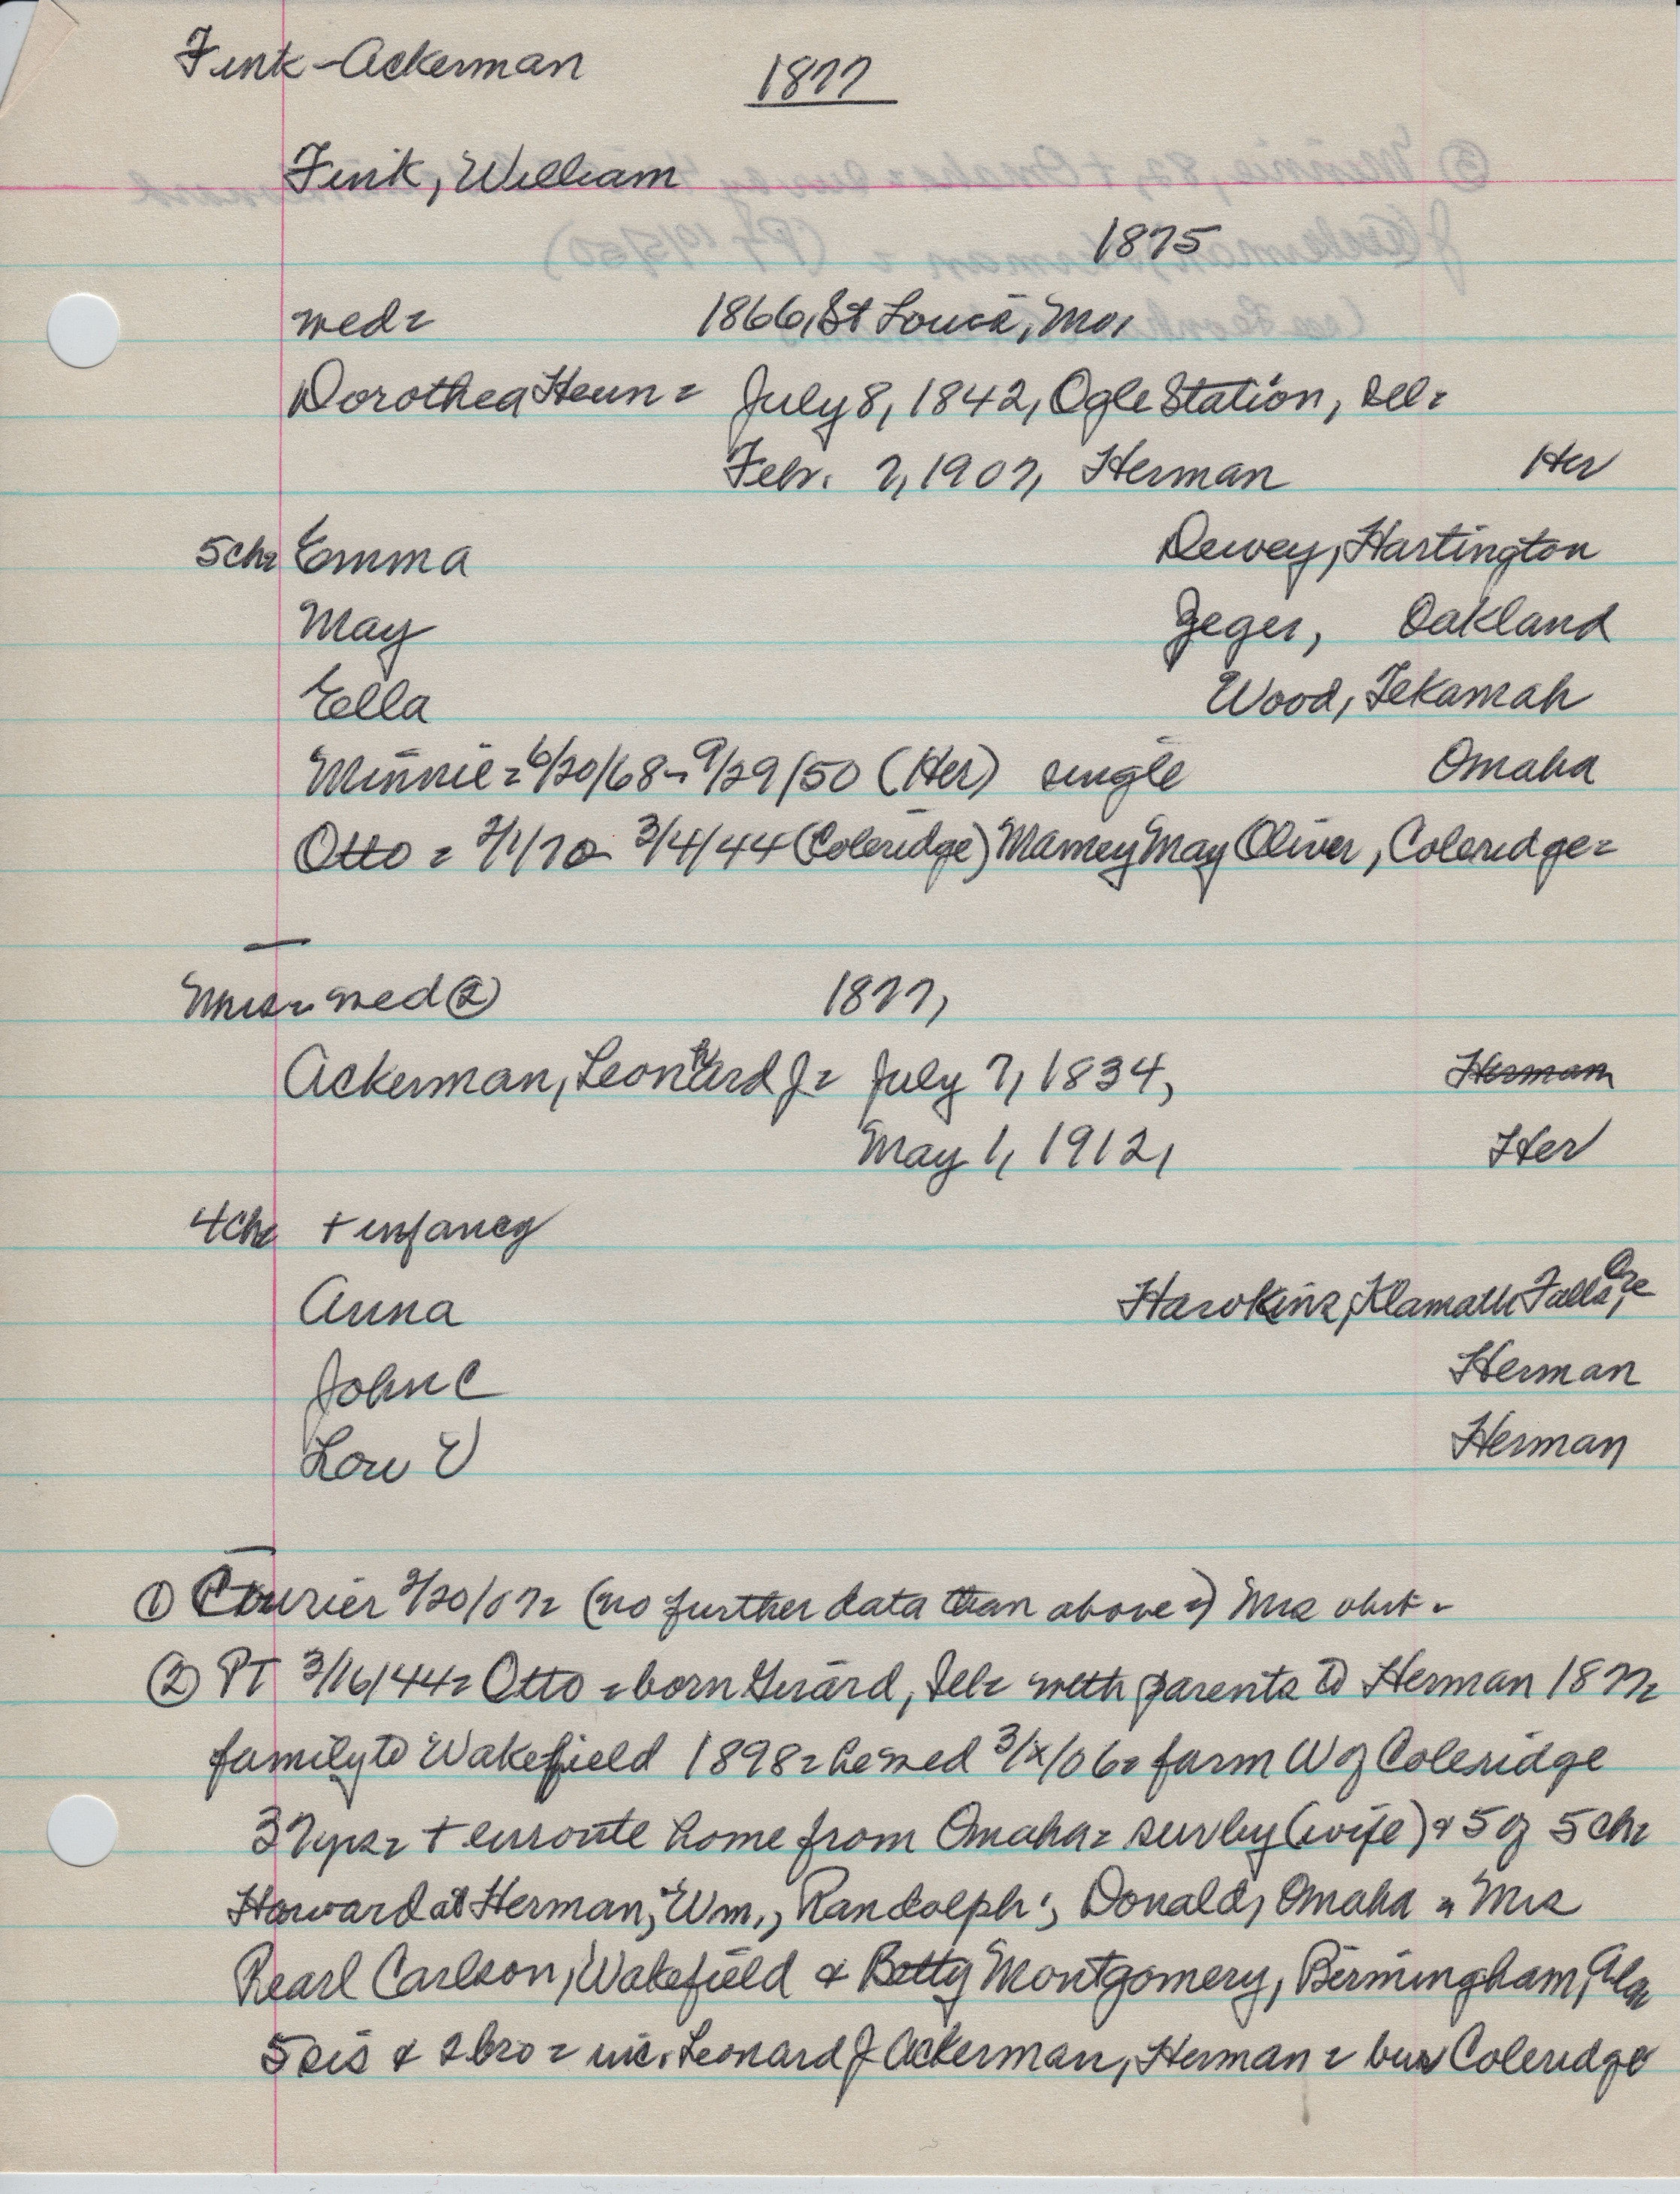 Fink-Ackerman 1877
Fink, William
1875
wed= 1866, St Louis, Mo,
Dorothea Heun= July 8, 1842, Ogle Station, Ill=
Febr. 7, 1907, Herman Her
5ch= Emma Dewey, Hartington
May Zeger, Oakland
Ella Wood, Tekamah
Minnie= 6/20/68- 9/29/50 (Her) single Omaha
Otto = 2/1/70- 3/4/44 (Coleridge) Mamey May Oliver, Coleridge=
Mrs= wed ② 1877,
Ackerman, Leonhard J= July 7, 1834, Herman
May 1, 1912, Her
4ch= + infancy
Anna Hawkins, Klamath Falls, Ore
John C Herman
Lou E Herman
① Courier 2/20/07= (no further data than above=) Mrs obit-
② PT 3/16/44= Otto =born Girard, Ill= with parents to Herman 1877=
family to Wakefield 1898= he wed 3/x/06= farm W of Coleridge
37yrs= + enroute home from Omaha= surv by (wife) & 5 of 5ch=
Howard at Herman, Wm., Randolph; Donald, Omaha = Mrs
Pearl Carlson, Wakefield & Betty Montgomery, Birmingham, Ala
5 sis & 2 bro = inc. Leonard J Ackerman, Herman = bur Coleridge